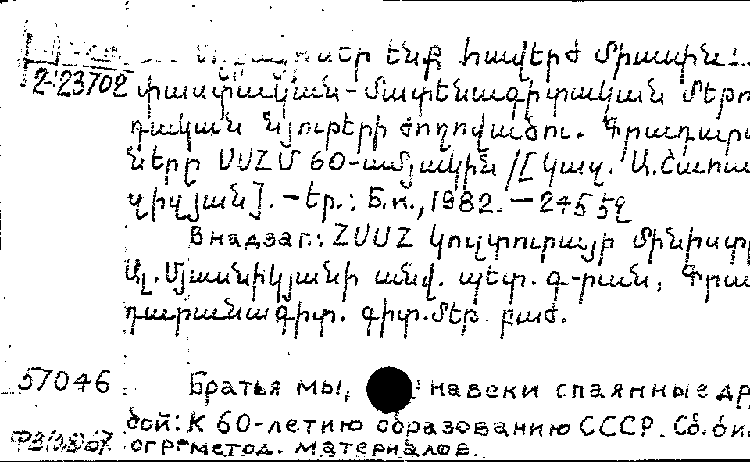 ենք հավերժ միասին:
2-23702 փաստական-մատենագիտական մեթո
դական նյութերի ժողովածու. Գրադար
ները ՍՍՀՄ 60-ամյակին /[Կազմ. Ա.Շահու
զիզյան]. – Եր.: Б.и., 1982. – 245 էջ
В надзаг.: ՀՍՍՀ կուլտուրայի մինիստր
Ալ. Մյասնիկյանի անվ. պետ. գ-րան, Գրա
դարանագիտ. գիտ. մեթ. բաժ.
57046 Братья мы, навеки спаянные др
бой: К 60-летию образованию СССР. Сб. би
огр метод. материалов.